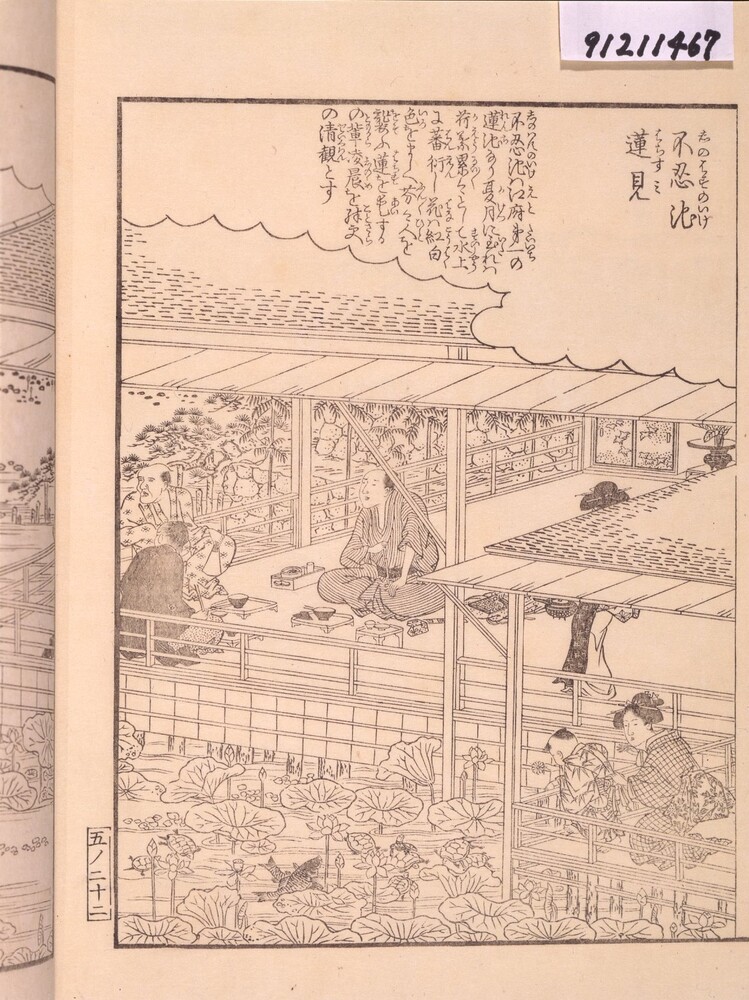 91211467
不忍池
蓮見
不忍池は江府第一の
蓮池なり夏月に至れば
荷葉累々として水上
に蕃衍し花は紅白
色をまじへ芬々人を
襲ふ蓮を愛する
の輩凌晨を殊更
の清観とす
五ノ二十二